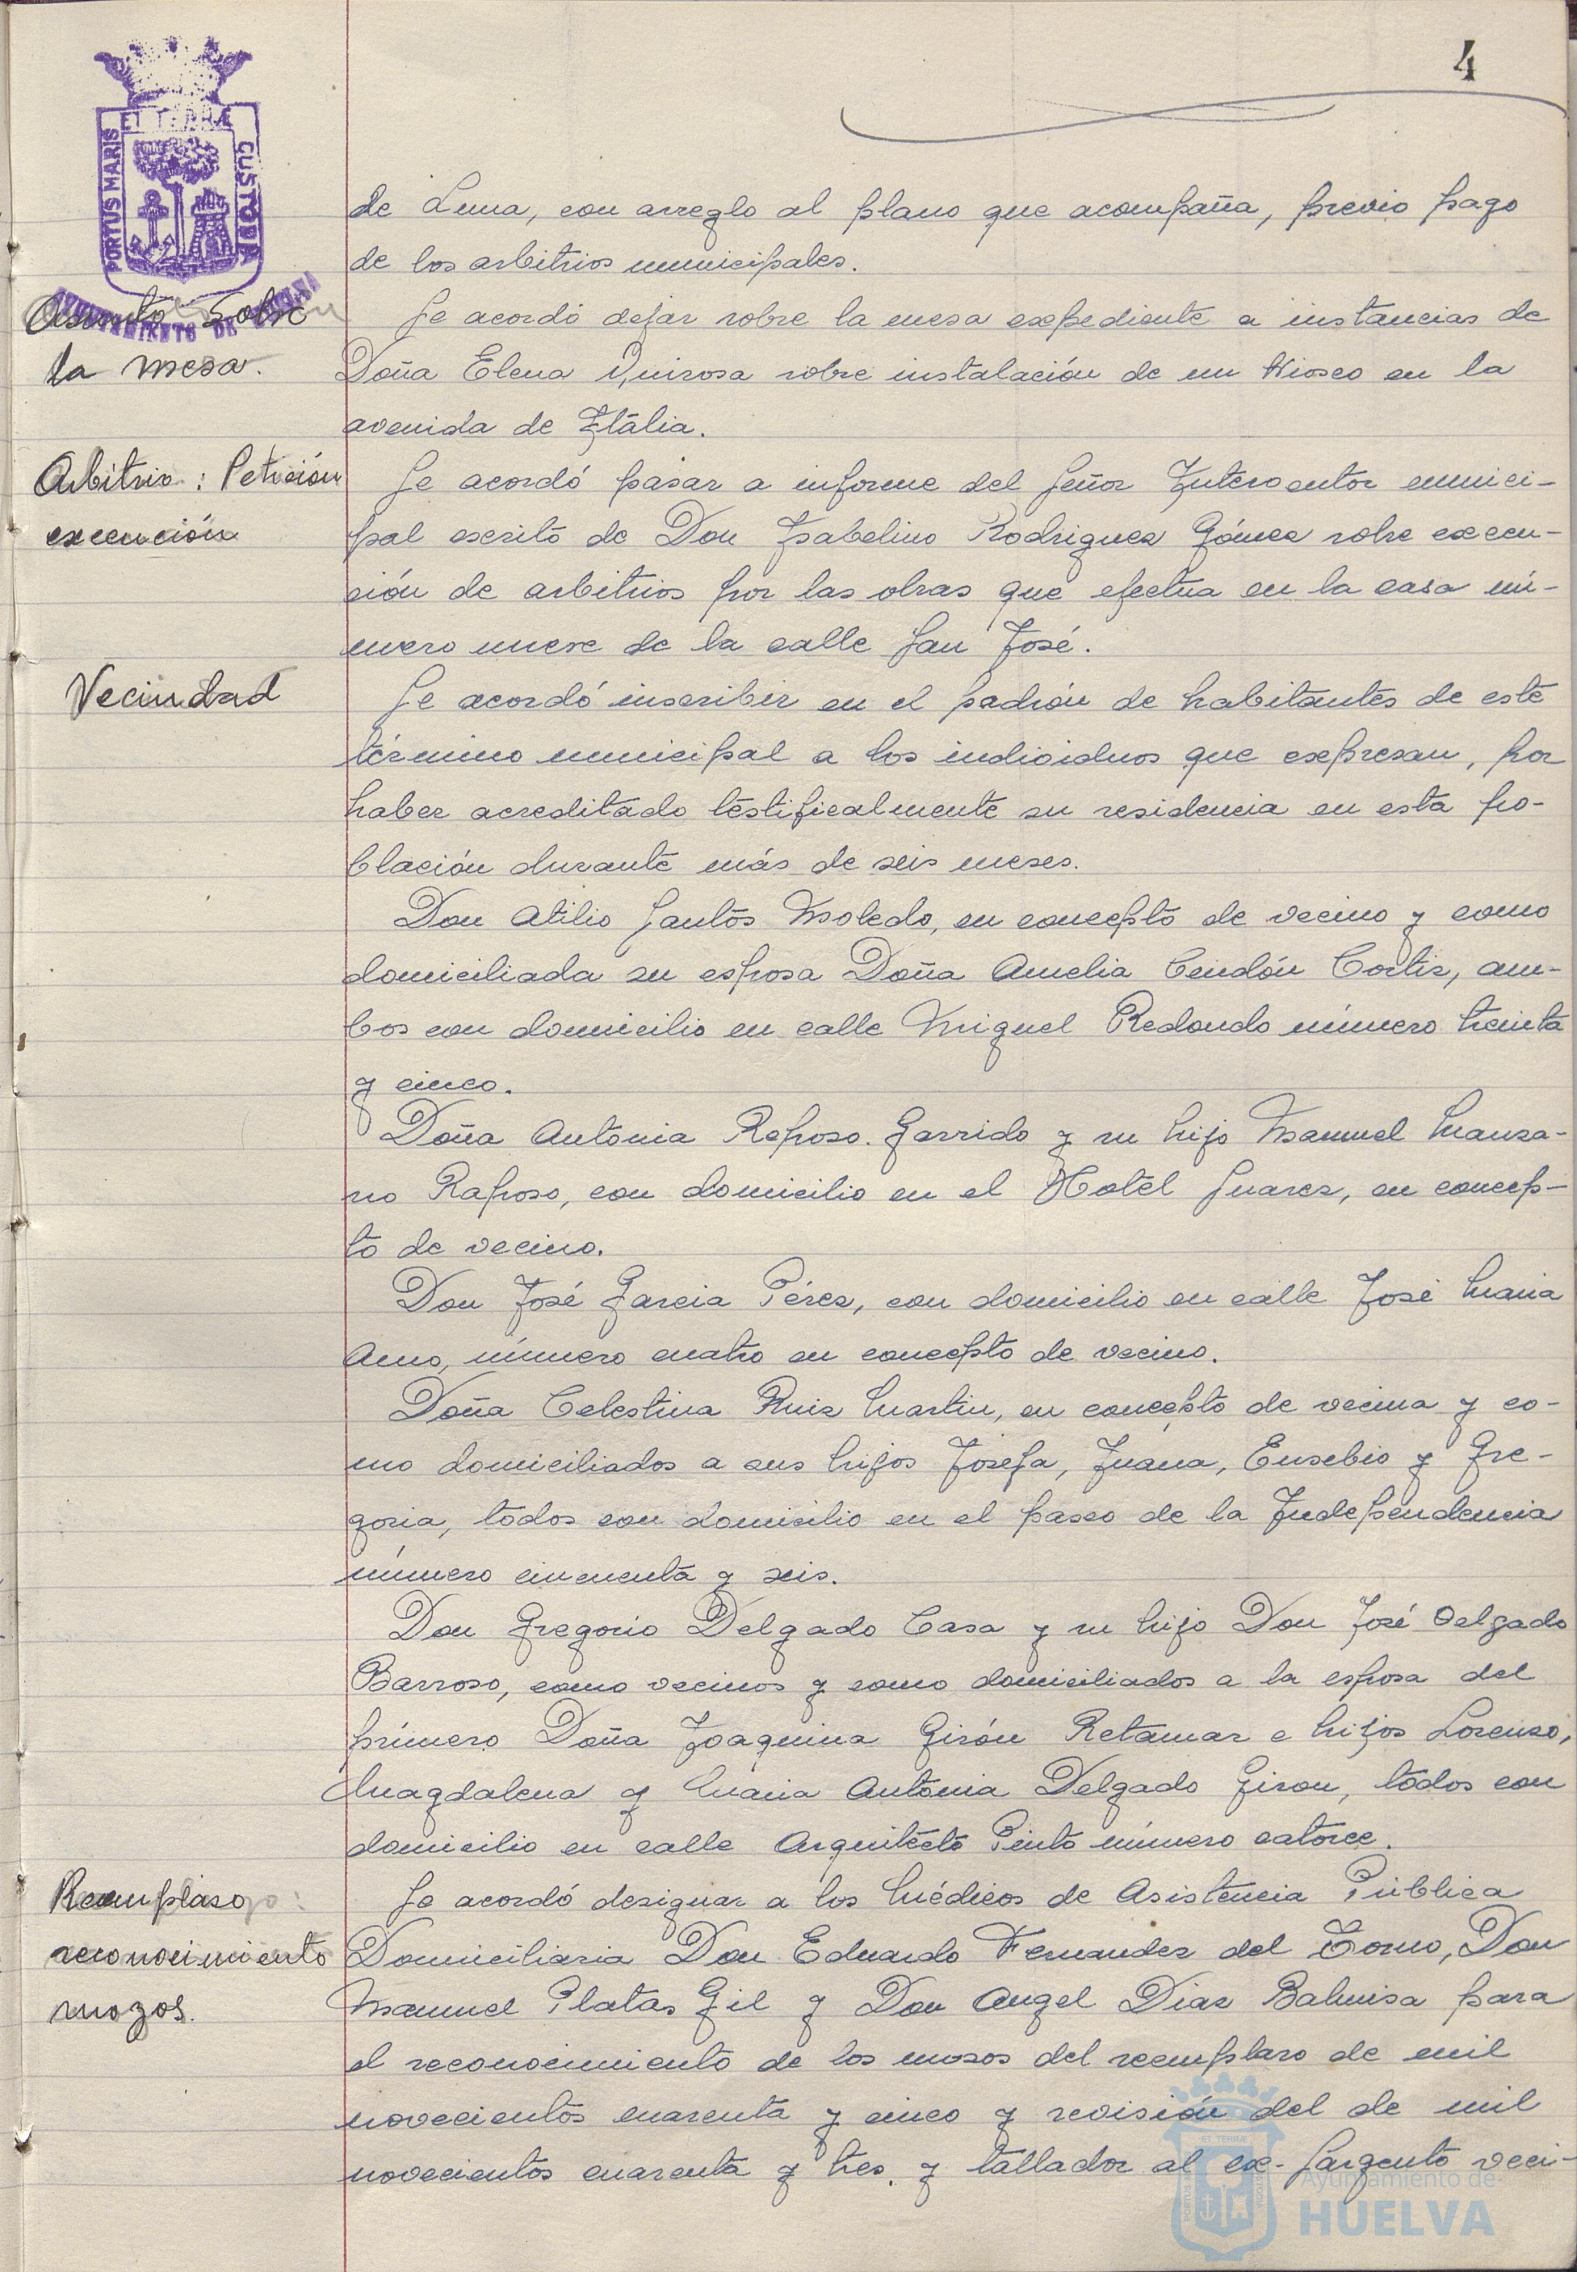 4
ET TERRÆ
PORTUS MARIS
CUSTODIA
AYUNTAMIENTO DE
de Luna, con arreglo al plano que acompaña, previo pago
de los arbitrios municipales.
Asunto sobre
la mesa.
Se acordó dejar sobre la mesa expediente a instancias de
Doña Elena Quirosa sobre instalación de un Kiosco en la
avenida de Itália.
Arbitrio: Petición
excención
Se acordó pasar a informe del Señor Interventor munici-
pal escrito de Don Isabelino Rodriguez Gómez sobre excen-
ción de arbitrios por las obras que efectua en la casa nú-
mero nueve de la calle San José.
Vecindad
Se acordó inscribir en el padrón de habitantes de este
término municipal a los individuos que expresan, por
haber acreditado testificalmente su residencia en esta po-
blación durante más de seis meses.
Don Atilio Santos Moledo, en concepto de vecino y como
domiciliada su esposa Doña Amelia Cendón Cortiz, am-
bos con domicilio en calle Miguel Redondo número treinta
y cinco.
Doña Antonia Reposo Garrido y su hijo Manuel Manza-
no Raposo, con domicilio en el Hotel Suarez, en concep-
to de vecino.
Don José Garcia Pérez, con domicilio en calle José Maria
Amo, número cuatro en concepto de vecino.
Doña Celestina Ruiz Martin, en concepto de vecina y co-
mo domiciliados a sus hijos Josefa, Juana, Eusebio y Gre-
goria, todos con domicilio en el paseo de la Independencia
número cincuenta y seis.
Don Gregorio Delgado Casa y su hijo Don José Delgado
Barroso, como vecinos y como domiciliados a la esposa del
primero Doña Joaquina Girón Retamar e hijos Lorenzo,
Magdalena y Maria Antonia Delgado Giron, todos con
domicilio en calle Arquitecto Pinto número catorce.
Reemplazo:
reconocimiento
mozos.
Se acordó designar a los Médicos de Asistencia Pública
Domiciliaria Don Eduardo Fernandez del Torno, Don
Manuel Platas Gil y Don Angel Diaz Balmisa para
el reconocimiento de los mozos del reemplazo de mil
novecientos cuarenta y cinco y revisión del de mil
novecientos cuarenta y tres, y tallador al ex-Sargento veci-
Ayuntamiento de
HUELVA